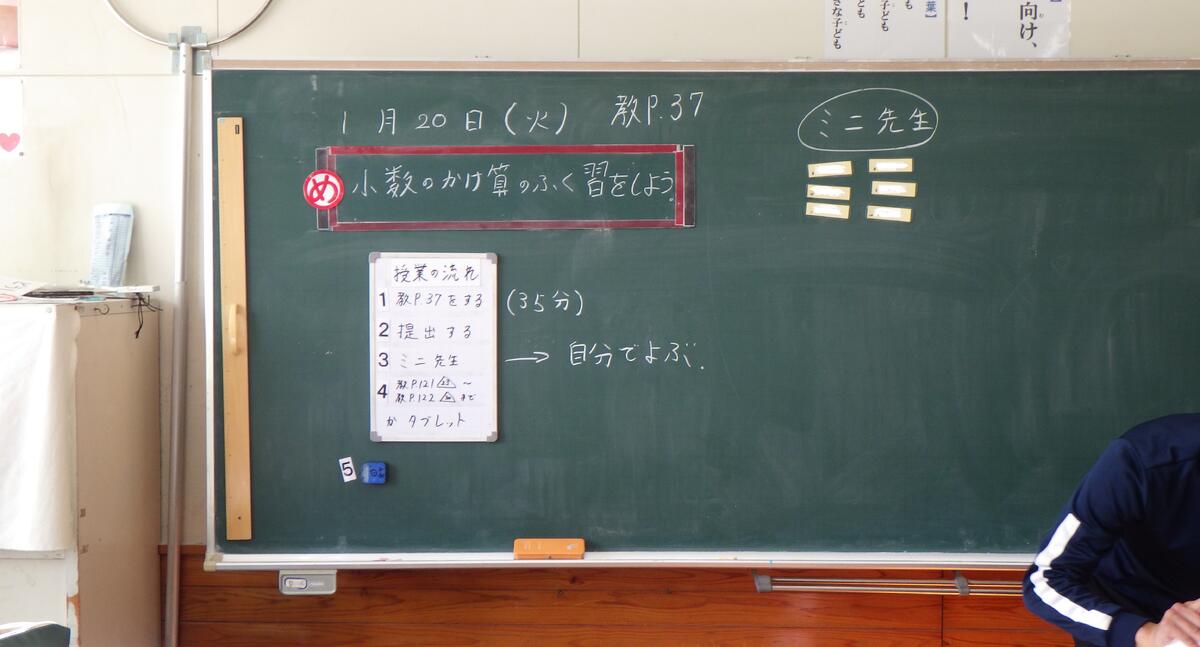 1月20日(火) 教P.37
め
小数のかけ算のふく習をしよう。
ミニ先生
授業の流れ
1 教P.37をする (35分)
2 提出する
3 ミニ先生 → 自分でよぶ.
4 教P.121 ~
教P.122 まで
か タブレット
5
葉】
も
子ども
ども
さな子ども
】
向け、
!